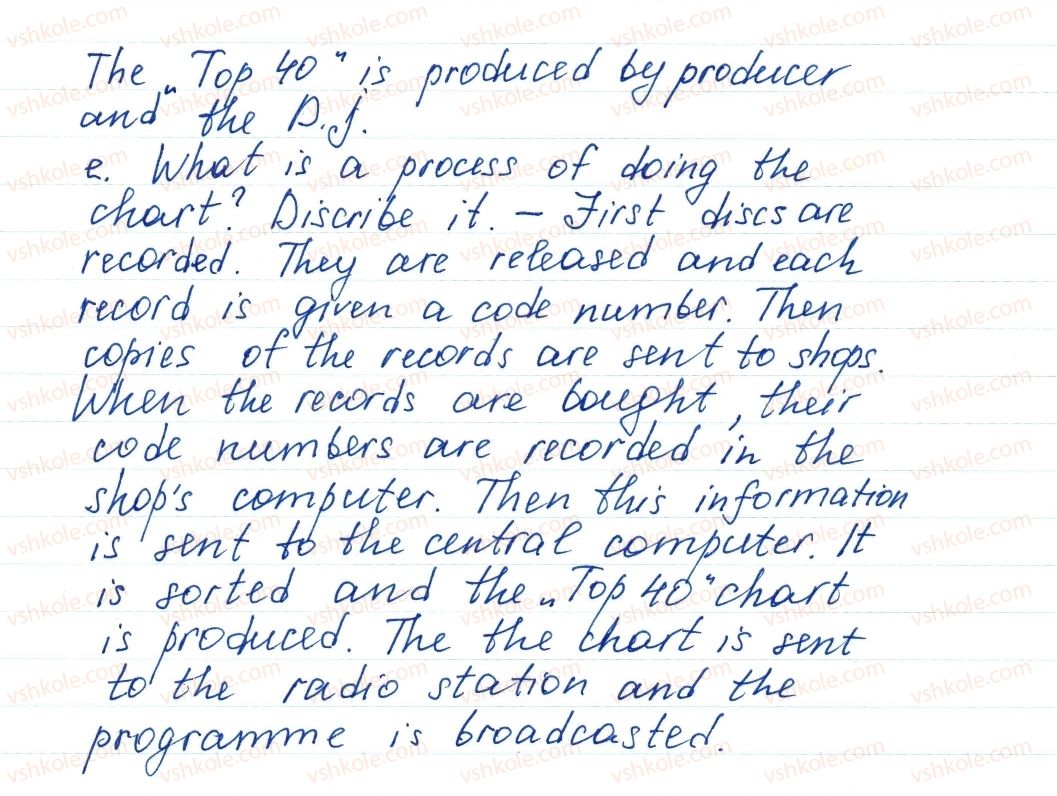 The „Top 40" is produced by producer
and the D.J.
e. What is a process of doing the
chart? Discribe it. – First discs are
recorded. They are released and each
record is given a code number. Then
copies of the records are sent to shops.
When the records are bought, their
code numbers are recorded in the
shop's computer. Then this information
is sent to the central computer. It
is sorted and the „Top 40" chart
is produced. The the chart is sent
to the radio station and the
programme is broadcasted.